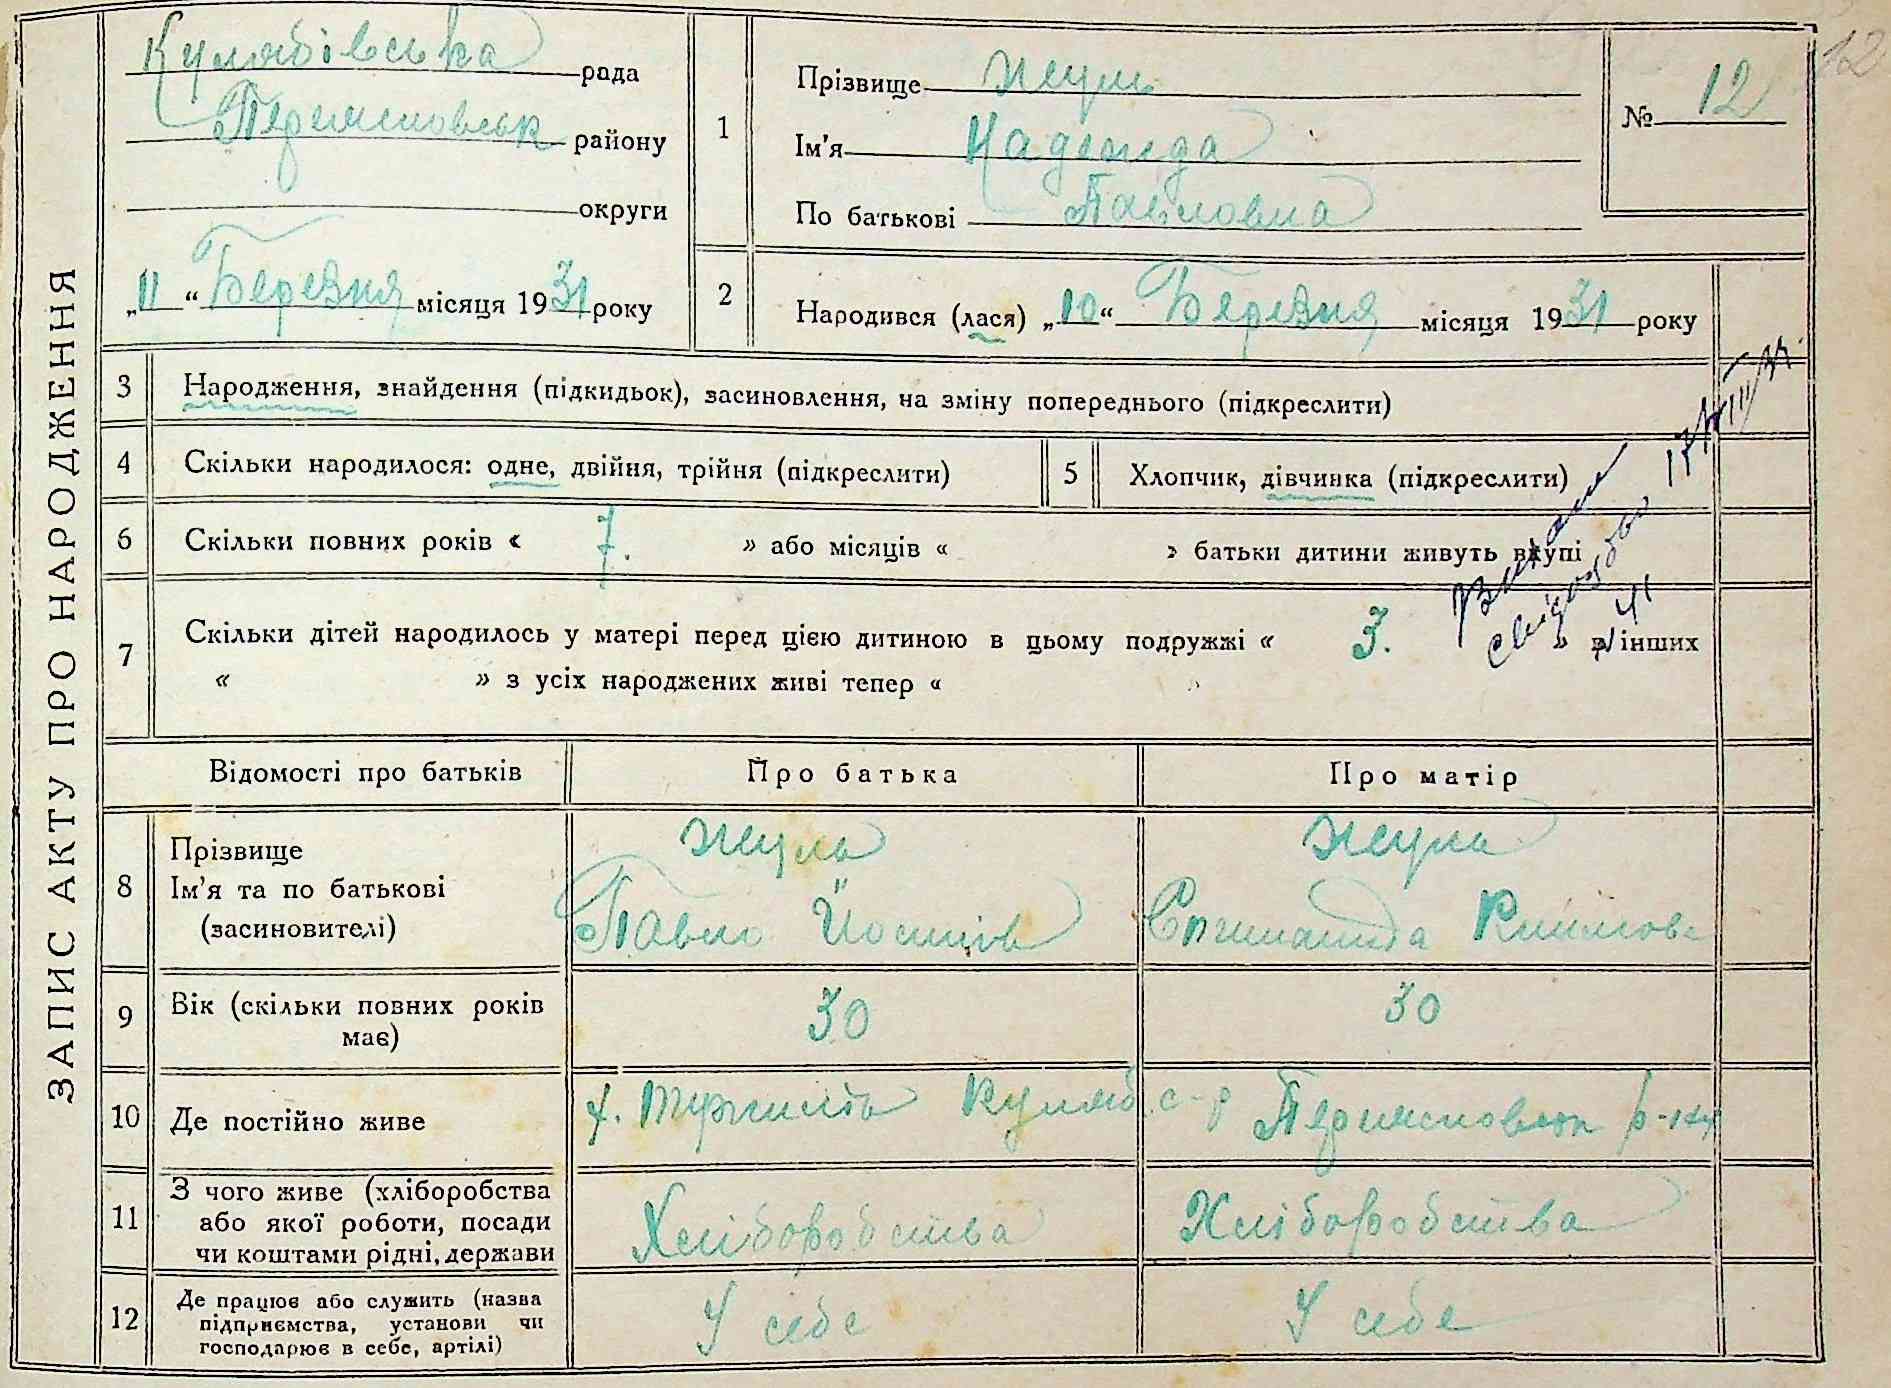 ЗАПИС АКТУ ПРО НАРОДЖЕННЯ
Кулябівська рада
району
округи
„11“ Березня місяця 1931 року
1
Прізвище Жула
Ім'я Надежда
По батькові Павловна
№ 12
12
2
Народився (лася) „10“ Березня місяця 1931 року
3 Народження, знайдення (підкидьок), засиновлення, на зміну попереднього (підкреслити)
4 Скільки народилося: одне, двійня, трійня (підкреслити)
5 Хлопчик, дівчинка (підкреслити)
6 Скільки повних років « 7. » або місяців « » батьки дитини живуть вкупі
7 Скільки дітей народилось у матері перед цією дитиною в цьому подружжі « 3. » в інших
« » з усіх народжених живі тепер «
Відомості про батьків Про батька Про матір
8 Прізвище
Ім'я та по батькові
(засиновителі)
Жула
Павло
Жула
9 Вік (скільки повних років
має)
30 30
10 Де постійно живе
х. Куляб. с-р
11 З чого живе (хліборобства
або якої роботи, посади
чи коштами рідні, держави
Хліборобства Хліборобства
12 Де працює або служить (назва
підприємства, установи чи
господарює в себе, артілі)
У себе У себе